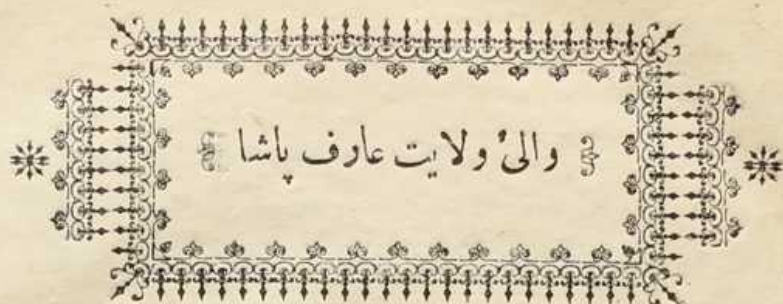 والیٔ ولایت عارف پاشا